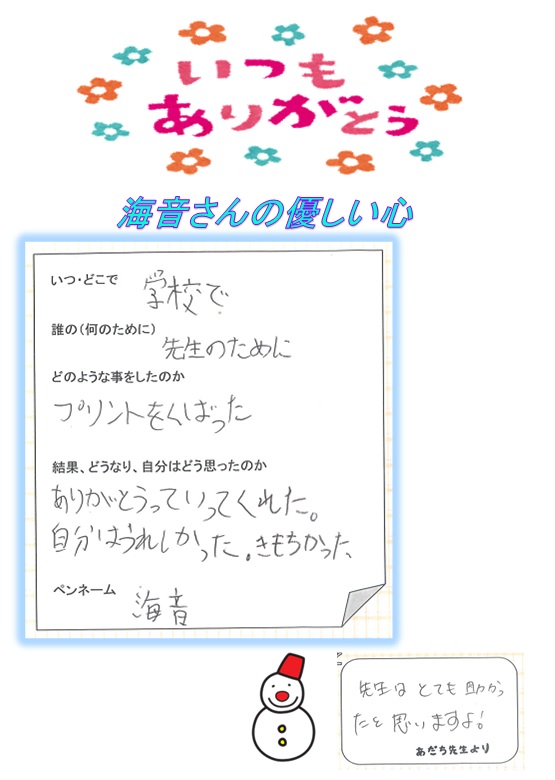 いつも
ありがとう
海音さんの優しい心
いつ・どこで 学校で
誰の(何のために)
先生のために
どのような事をしたのか
プリントをくばった
結果、どうなり、自分はどう思ったのか
ありがとうっていってくれた。
自分はうれしかった。きもちかった
ペンネーム 海音
先生は とても 助かっ
たと 思いますよ!
あだち先生より